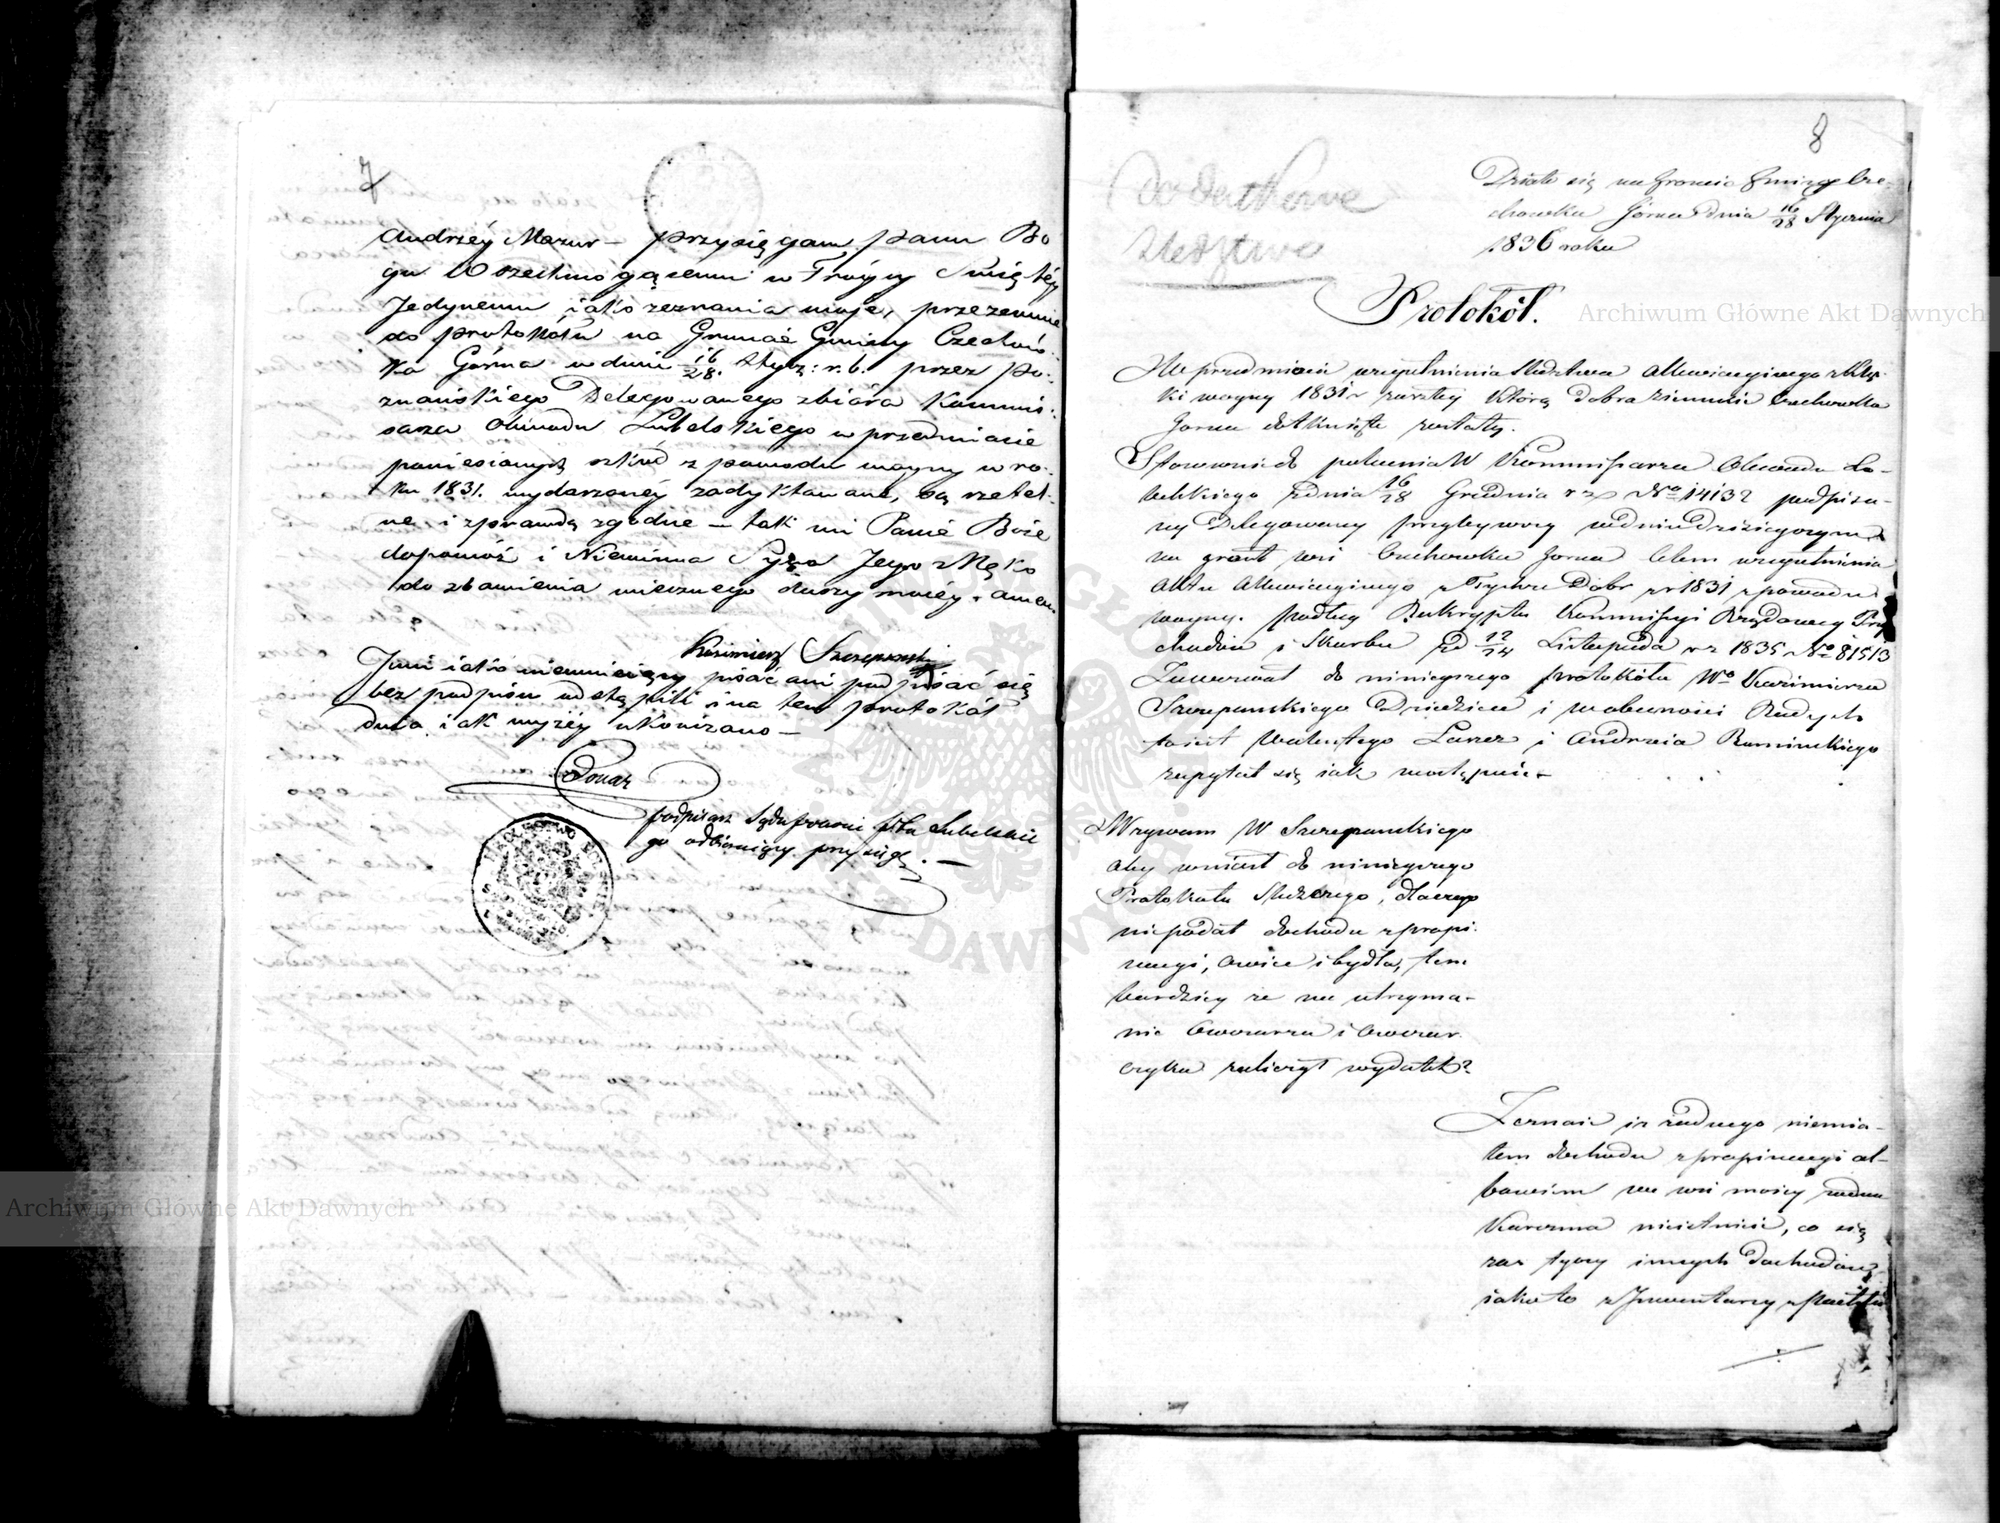 7
Andrzéy Mazur — przysięgam panu Bo
gu Wszechmogącemu w Tróycy Swiętéy
Jedynemu, iako zeznania moje, przezemnie
do protokołu na Gruncie Gminy Czechów-
ka Górna w dniu 16/28. Stycz: r. b. przez po-
znańskiego Delegowanego zbióra Kommis-
sarza Obwodu Lubelskiego w przedmiocie
poniesionych szkód z powodu woyny w ro-
ku 1831. wydarzonéy zadyktowane, są rzetel-
ne i z prawdą zgodne — tak mi Panie Boże
dopomóż i Niewinna Jego Męka
do zbawienia wiecznego duszy moiéy. amen
Kazimierz Szczepański
Inni iako nieumieiący pisać ani podpisać się
bez podpisu odstąpili i na tem protokół
iak wyżéy ukończono —
podpisarz Sądu Ptu Lubelskie
go odbieraiący przysięgę. —
8
Dodatkowe
Sledztwo
Działo się na Groncie Gminy Cze-
chowka Górna dnia 16/28 Stycznia
1836 roku
Protokół.
W przedmiocie uzupełnienia Sledztwa z Klęs-
ki woyny 1831 r zaszłey którą dobra ziemskie Czechowka
Gorna dotknięte zostały.
Stosownie do polecenia W Kommissarza Obwodu Lu-
belskiego z dnia 16/28 Grudnia r z No 14132 podpisa-
ny Delegowany przybywszy w dniu dzisieyszym
na gront wsi Czechowka Gorna Celem uzupełnienia
aktu z Tychże Dobr z r 1831 z powodu
woyny. podług Reskryptu Kommissyi Rządowey Przy
chodów i Skarbu z d 12/24 Listopada r z 1835 No 81513
Zawezwał do ninieyszego protokółu Wo Kazimierza
Szczepanskiego Dziedzica i w obecności Radnych
tości Walentego Lasez i Andrzeia Raminskiego
zapytał się iak następuie
Wzywam W Szczepanskiego
aby wniosł do ninieyszego
Protokułu Sledczego, dlaczego
niepodał dochodu z propi-
nacyi, owiec i bydła, tem
bardziey że na utrzyma-
nie Owczarza i Owczar-
czyka zaliczył wydatek?
Zeznaie iż żadnego niemia-
łem dochodu z propinacyi al-
bowiem na wsi moiey żadna
Karczma nieistnieie, co się
zaś tyczy innych Dochodów
iako to z Inwentarzy
Archiwum Główne Akt Dawnych
Archiwum Główne Akt Dawnych